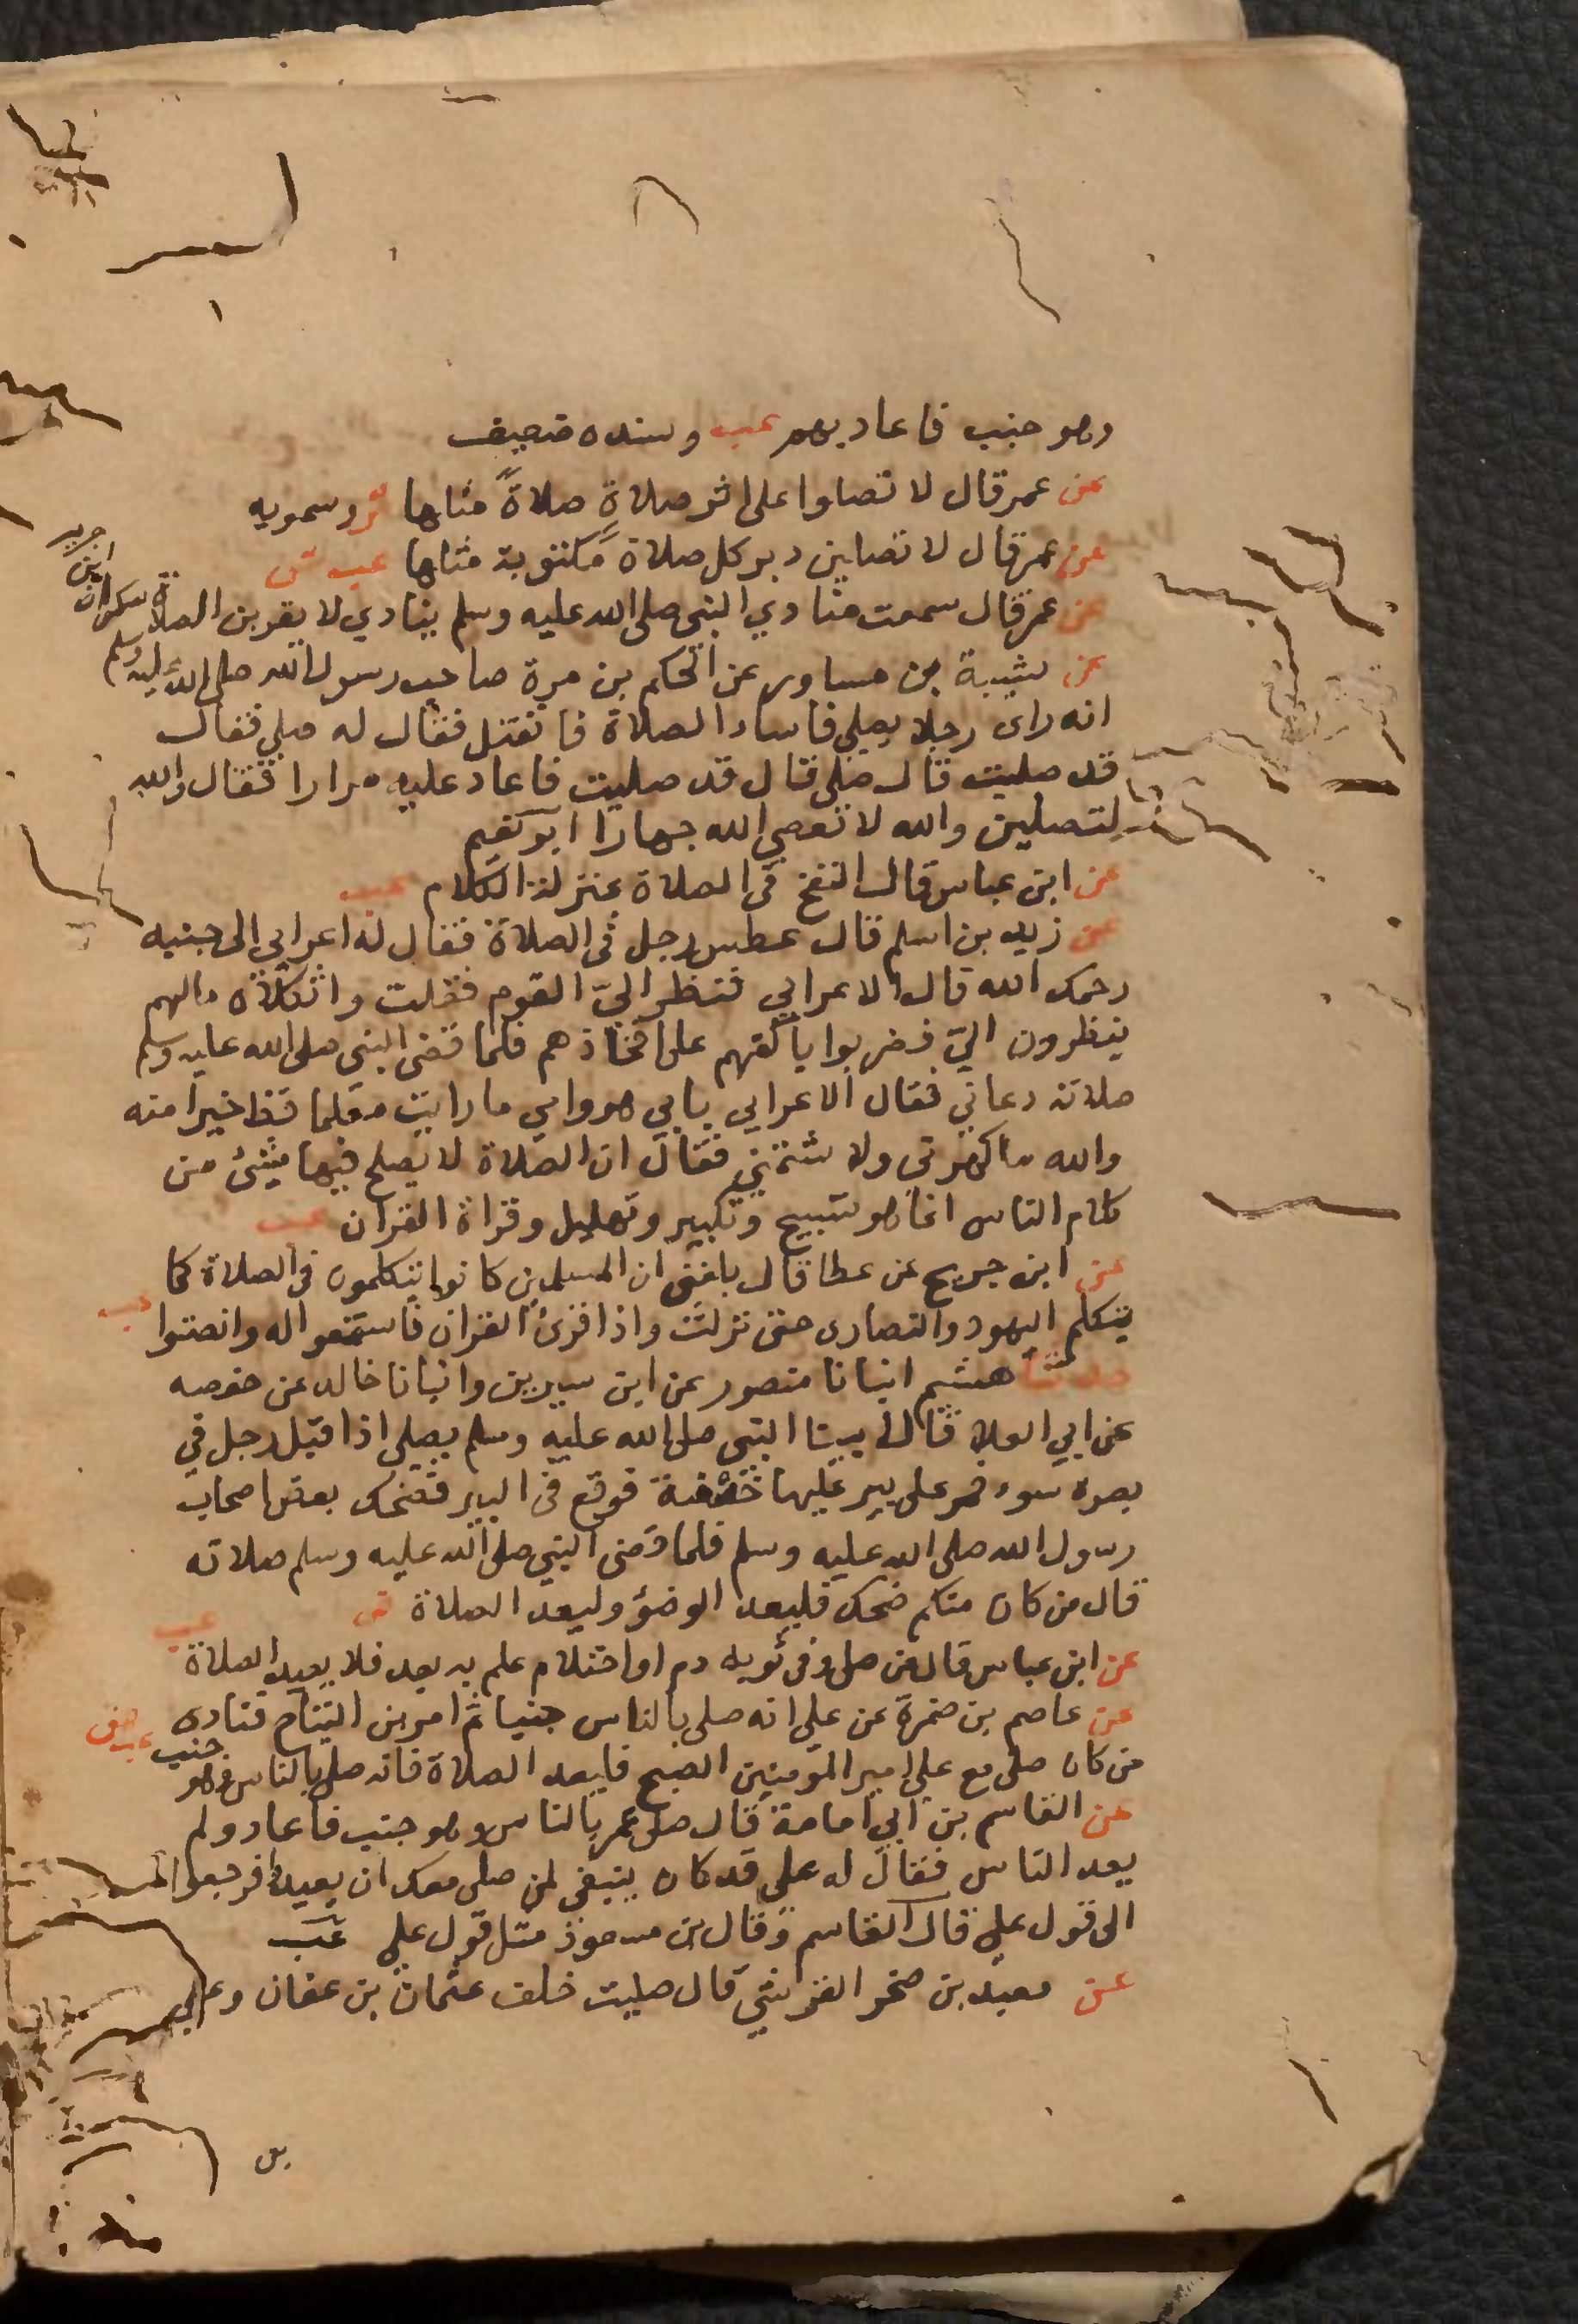 وهو جنب فاعاد بهم عب وسنده ضعيف
عن عمر قال لا تصلوا على اثر صلاةٍ صلاةً مثلها ثر وسمويه
عن عمر قال لا تصلين دبر كل صلاة مكتوبة مثلها عب ش
عن عمر قال سمعت منادي النبي صلى الله عليه وسلم ينادي لا يقربن الصلاة سكران ابن جرير
عن شيبة بن مساور عن الحكم بن مرة صاحب رسول الله صلى الله عليه وسلم
انه راى رجلا يصلي فاساء الصلاة فانفتل فقال له صلي فقال
قد صليت قال صلى قال قد صليت فاعاد عليه مرارا فقال والله
لتصلين والله لا تعصي الله جهارا ابو نعيم
عن ابن عباس قال النفخ في الصلاة بمنزلة الكلام عب
عن زيد بن اسلم قال عطس رجل في الصلاة فقال له اعرابي الى جنبه
رحمك الله قال الاعرابي فنظر اليّ القوم فقلت واثكلاه مالهم
ينظرون اليّ فضربوا باكفهم على افخاذهم فلما قضى النبي صلى الله عليه وسلم
صلاته دعاني فقال الاعرابي بابي هو وامي ما رايت معلما قط خيرا منه
والله ما كهرني ولا شتمني فقال ان الصلاة لا يصلح فيها شئ من
كلام الناس انما هو تسبيح وتكبير وتهليل وقراة القران عب
عن ابن جريج عن عطا قال بلغني ان المسلمين كانوا يتكلمون في الصلاة كما
يتكلم اليهود والنصارى حتى نزلت واذا قرئ القران فاستمعوا له وانصتوا عب
حدثنا هشيم انبانا منصور عن ابن سيرين وانبانا خالد عن حفصه
عن ابي العلا قال بينا النبي صلى الله عليه وسلم يصلي اذا قبل رجل في
بصره سوء فمر على بير عليها خصفة فوقع في البير فضحك بعض اصحاب
رسول الله صلى الله عليه وسلم فلما قضى النبي صلى الله عليه وسلم صلاته
قال من كان منكم ضحك فليعد الوضؤ وليعد الصلاة ص
عن ابن عباس قال من صلى وفي ثوبه دم او احتلام علم به بعد فلا يعيد الصلاة عب
عن عاصم بن ضمرة عن علي انه صلى بالناس جنبا ثم امر بن النباح فنادى
من كان صلى مع علي امير المؤمنين الصبح فليعد الصلاة فانه صلى بالناس وهو جنب عب هق
عن القاسم بن ابي امامة قال صلى عمر بالناس وهو جنب فاعاد ولم
يعد الناس فقال له علي قد كان ينبغي لمن صلى معك ان يعيد افرجعوا
الى قول علي قال القاسم وقال بن مسعود مثل قول علي عب
عن معبد بن صخر القرشي قال صليت خلف عثمان بن عفان وعلي
بن